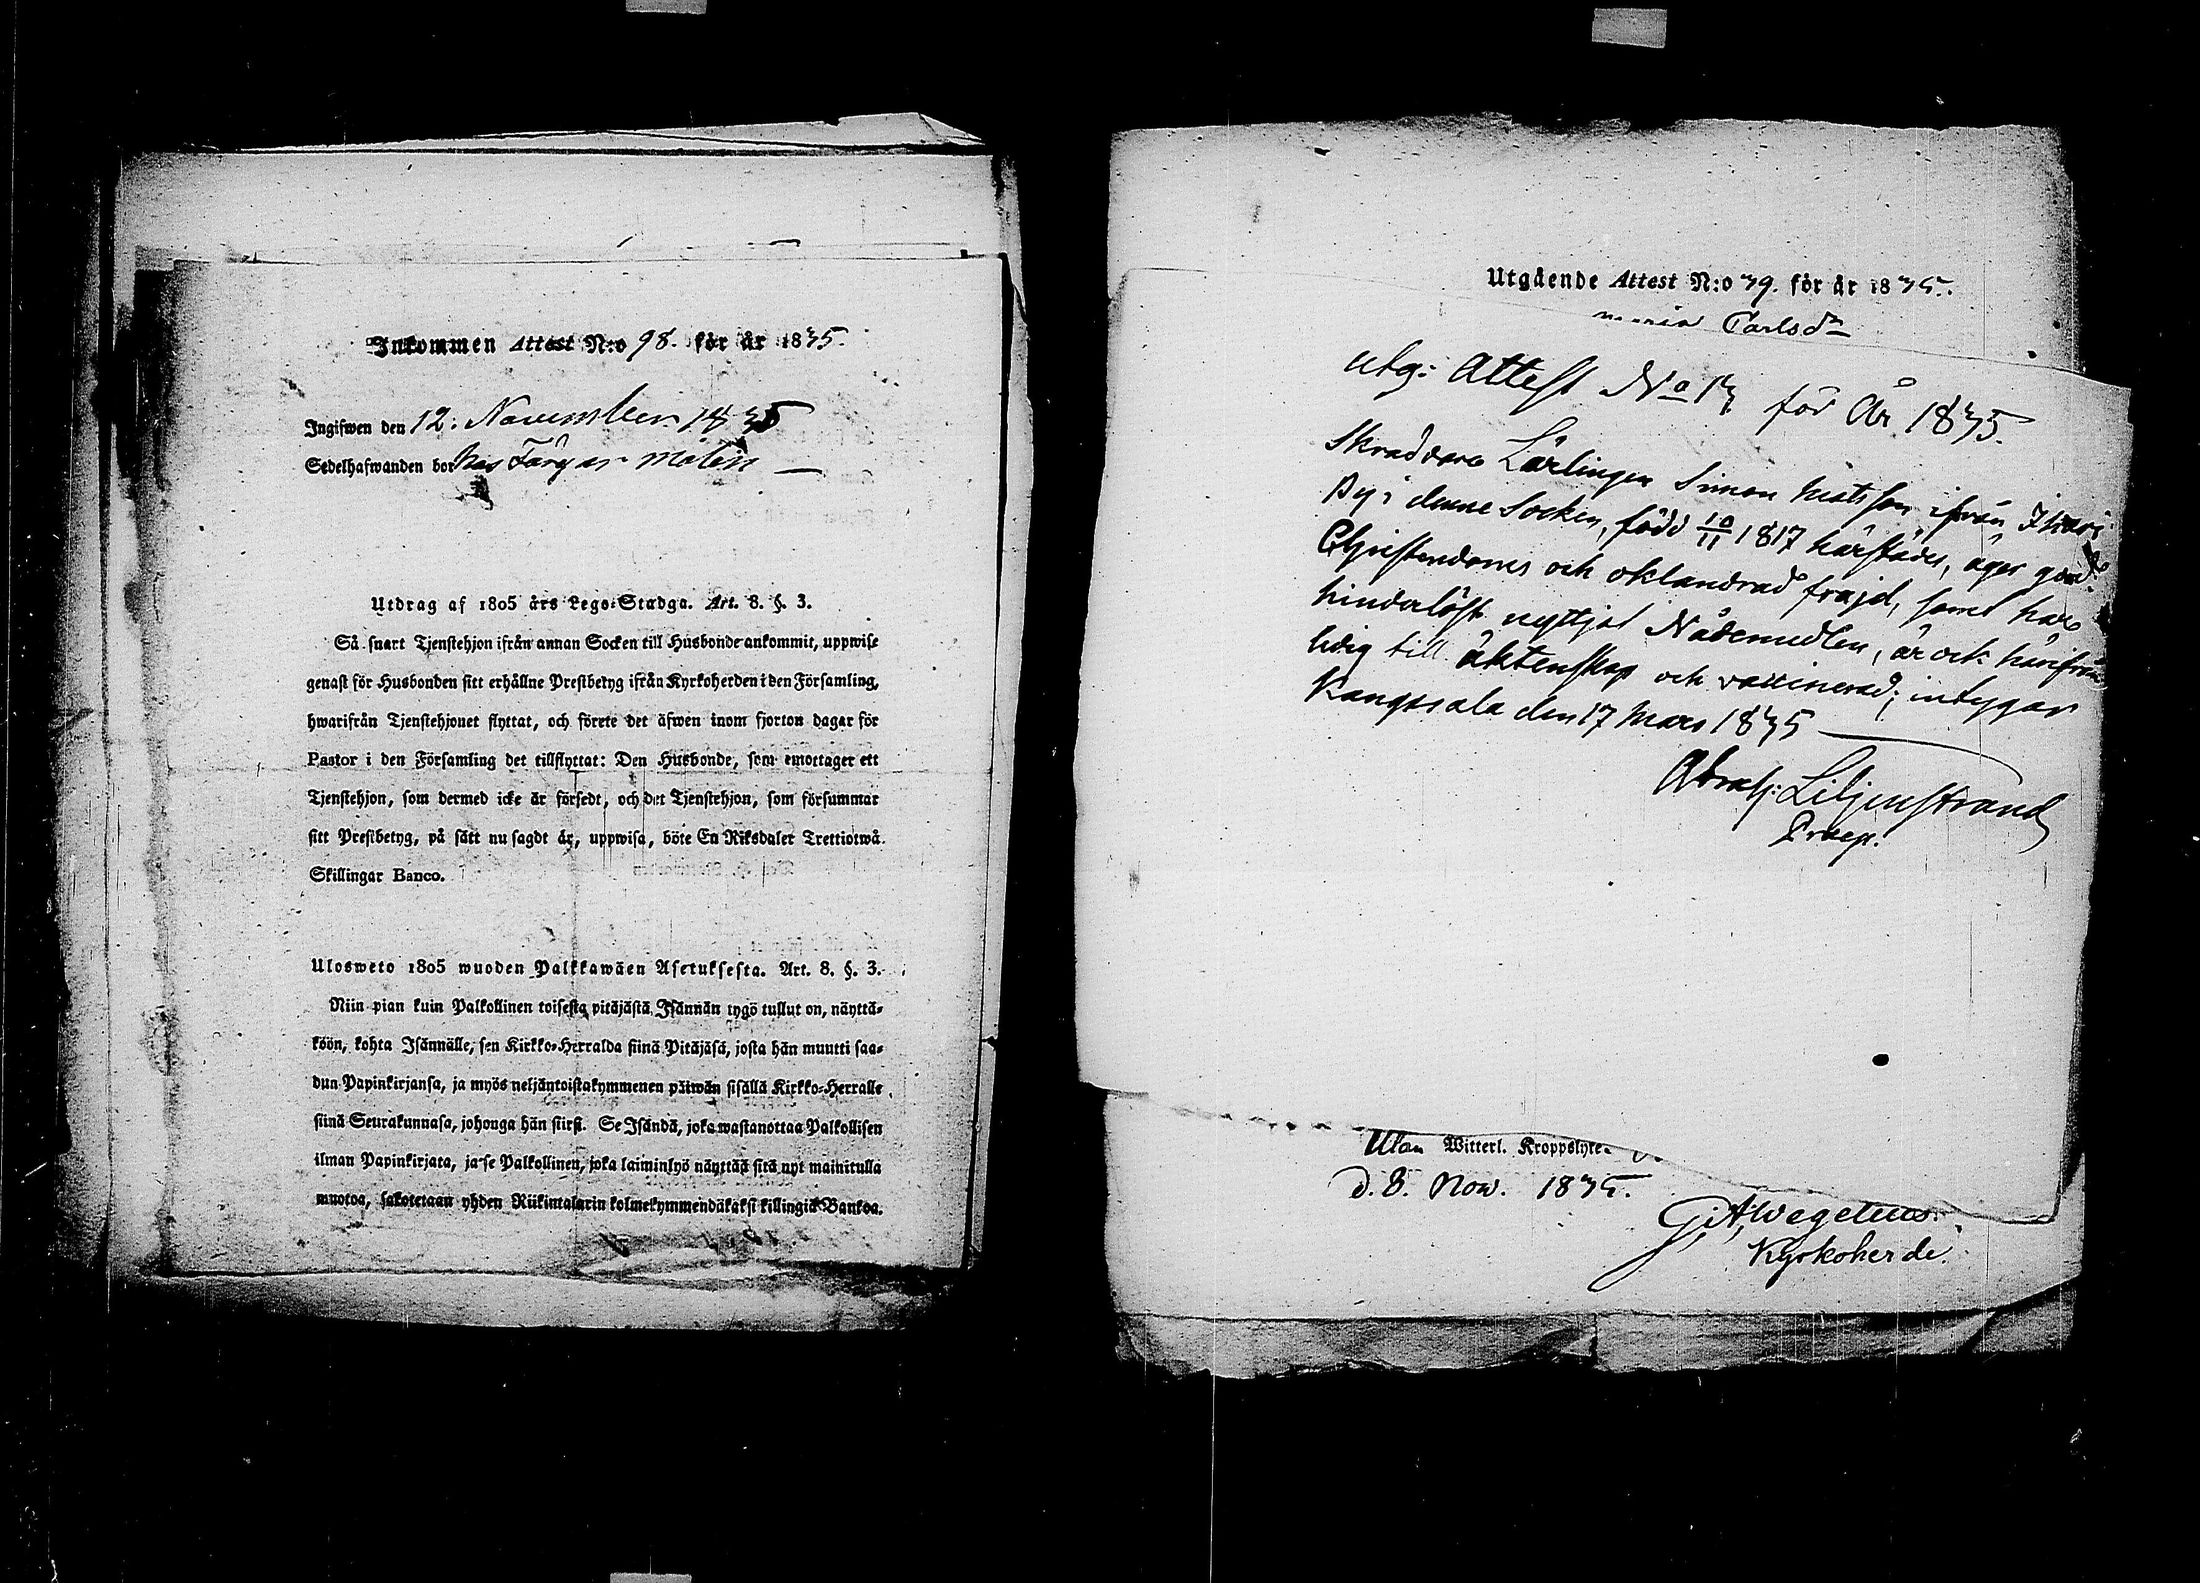 Inkommen Attest N:o 98. för år 1835.
Ingifwen den 12. November 1835
Sedelhafwanden bor hos Färgar Molin
Utdrag af 1805 års Lego-Stadga. Art. 8. §. 3.
Så snart Tjenstehjon ifrån annan Socken till Husbonde ankommit, uppwise
genast för Husbonden sitt erhållne Prestbetyg ifrån Kyrkoherden i den Församling,
hwarifrån Tjenstehjonet flyttat, och förete det äfwen inom fjorton dagar för
Pastor i den Församling det tillflyttat: Den Husbonde, som emottager ett
Tjenstehjon, som dermed icke är försedt, och det Tjenstehjon, som försummar
sitt Prestbetyg, på sätt nu sagdt är, uppwisa, böte En Riksdaler Trettiotwå
Skillingar Banco.
Ulosweto 1805 wuoden Palkkawäen Asetuksesta. Art. 8. §. 3.
Niin pian kuin Palkollinen toisesta pitäjästä Isännän tygö tullut on, näyttä-
köön, kohta Isännälle, sen Kirkko-Herralda siinä Pitäjäsä, josta hän muutti saa-
dun Papinkirjansa, ja myös neljäntoistakymmenen päiwän sisällä Kirkko-Herralle
siinä Seurakunnasa, johonga hän siirsi. Se Isändä, joka wastanottaa Palkollisen
ilman Papinkirjata, ja se Palkollinen, joka laiminlyö näyttää sitä nyt mainitulla
muotoa, sakotetaan yhden Riikintalarin kolmekymmendäkaksi killingiä Bankoa.
Utgående Attest N:o 39. för år 1835.
Maria Carlsdr
Utg: Attest No 13 för År 1835.
Skraddare Lärlingen Simon Matsson ifrån
By i denne Socken, född 10/11 1817 härstädes, äger god
Christendoms och oklandrad frejd, samt har
hinderlöst nyttjat Nådemedlen, är ock härifrån
ledig till äktenskap och vaccinerad; intygar
Kangasala den 17 Mars 1835
Abrah: Liljenstrand
Praep.
Utan Witterl. Kroppslyte.
d. 8. Nov. 1835.
G. A. Wegelius.
Kyrkoherde.